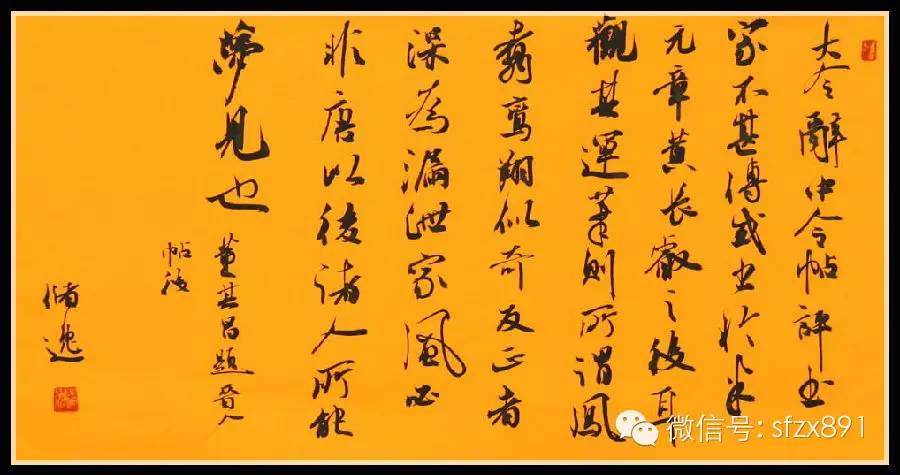 大令辭中令帖評書
家不甚傳或出於米
元章黃長睿之後耳
觀其運筆則所謂鳳
翥鸞翔似奇反正者
深為漏泄家風必
非唐以後諸人所能
夢見也
董其昌題晉人
帖後
逸
微信号: sfzx891